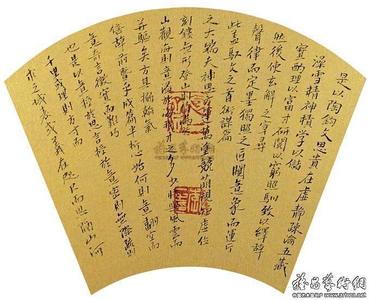 是以陶钧文思贵在虚静疏瀹五藏
澡雪精神积学以储
宝酌理以富才研阅以穷照驯致以绎辞
然后使玄解之宰寻
声律而定墨独照之匠窥意象而运斤
此盖驭文之首术谋篇
之大端夫神思方运万涂竞萌规矩虚位
刻镂无形登山则情满于
山观海则意溢于海我才之多少将与风云而
并驱矣方其搦翰气
倍辞前暨乎成篇半折心始何则意翻空而
易奇言徵实而难巧
也是以意授于思言授于意密则无际疏则
千里或理在方寸而
求之域表或义在咫尺而思隔山河